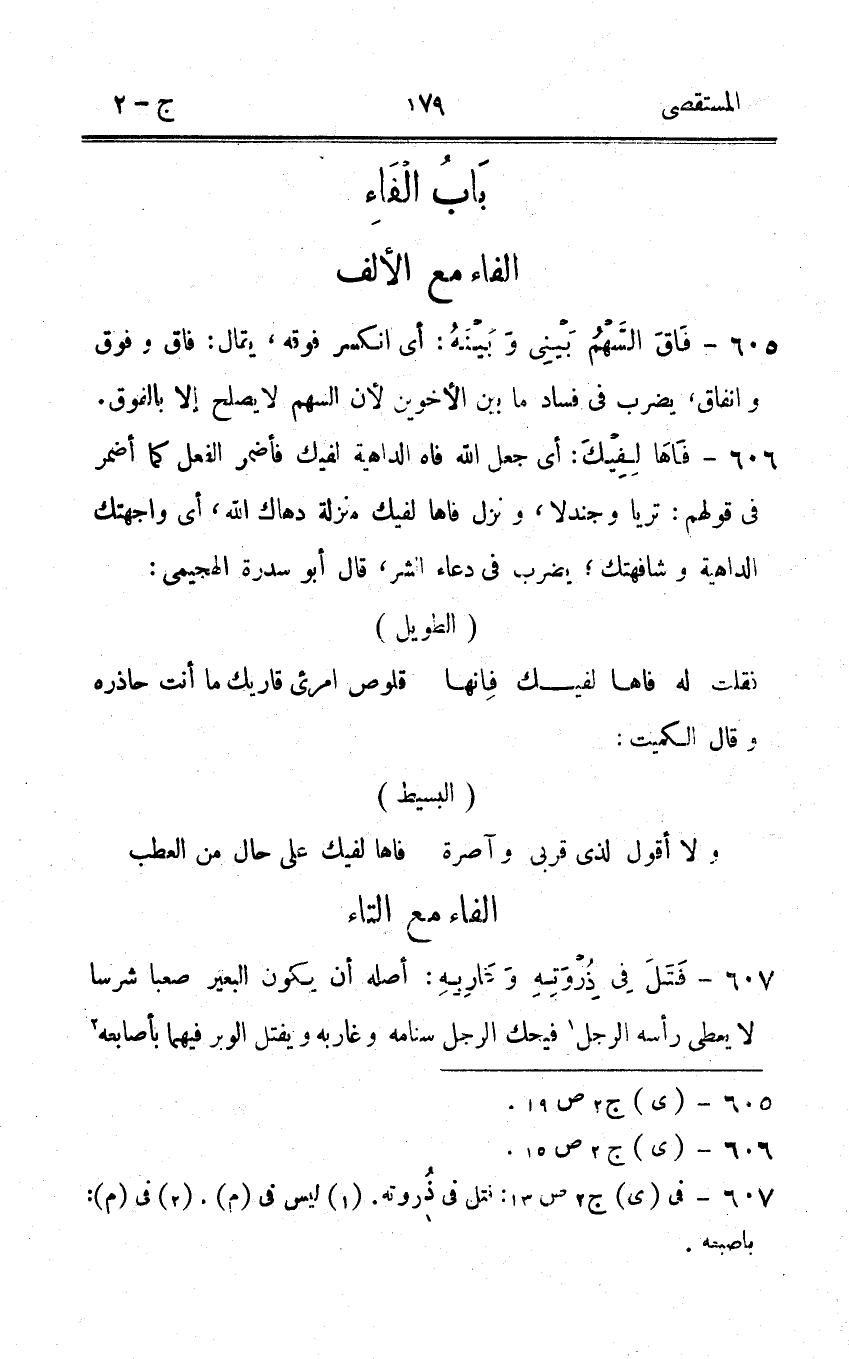 المستقصى ١٧٩ ج - ٢
بَابُ الْفَاءِ
الفاء مع الألف
٦٠٥ - فَاقَ السَّهْمُ بَيْنِى وَ بَيْنَهُ: أى انكسر فوقه، يقال: فاق و فوق
و انفاق، يضرب فى فساد ما بين الأخوين لأن السهم لا يصلح إلا بالفوق.
٦٠٦ - فَاهَا لِفِيْكَ: أى جعل الله فاه الداهية لفيك فأضمر الفعل كما أضمر
فى قولهم: تربا وجندلا، و نزل فاها لفيك منزلة دهاك الله، أى واجهتك
الداهية و شافهتك؛ يضرب فى دعاء الشر، قال أبو سدرة الهجيمى:
( الطويل )
فقلت له فاها لفيك فإنها قلوص امرئ قاريك ما أنت حاذره
و قال الكميت:
( البسيط )
و لا أقول لذى قربى و آصرة فاها لفيك على حال من العطب
الفاء مع التاء
٦٠٧ - فَتَلَ فِى ذُرْوَتِهِ وَ غَارِبِهِ: أصله أن يكون البعير صعبا شرسا
لا يعطى رأسه الرجل١ فيحك الرجل سنامه و غاربه و يفتل الوبر فيهما بأصابعه٢
٦٠٥ - (ى) ج٢ ص ١٩ .
٦٠٦ - (ى) ج ٢ ص ١٥ .
٦٠٧ - فى (ى) ج٢ ص ١٣: فتل فى ذُروته. (١) ليس فى (م) . (٢) فى (م):
باصبته .